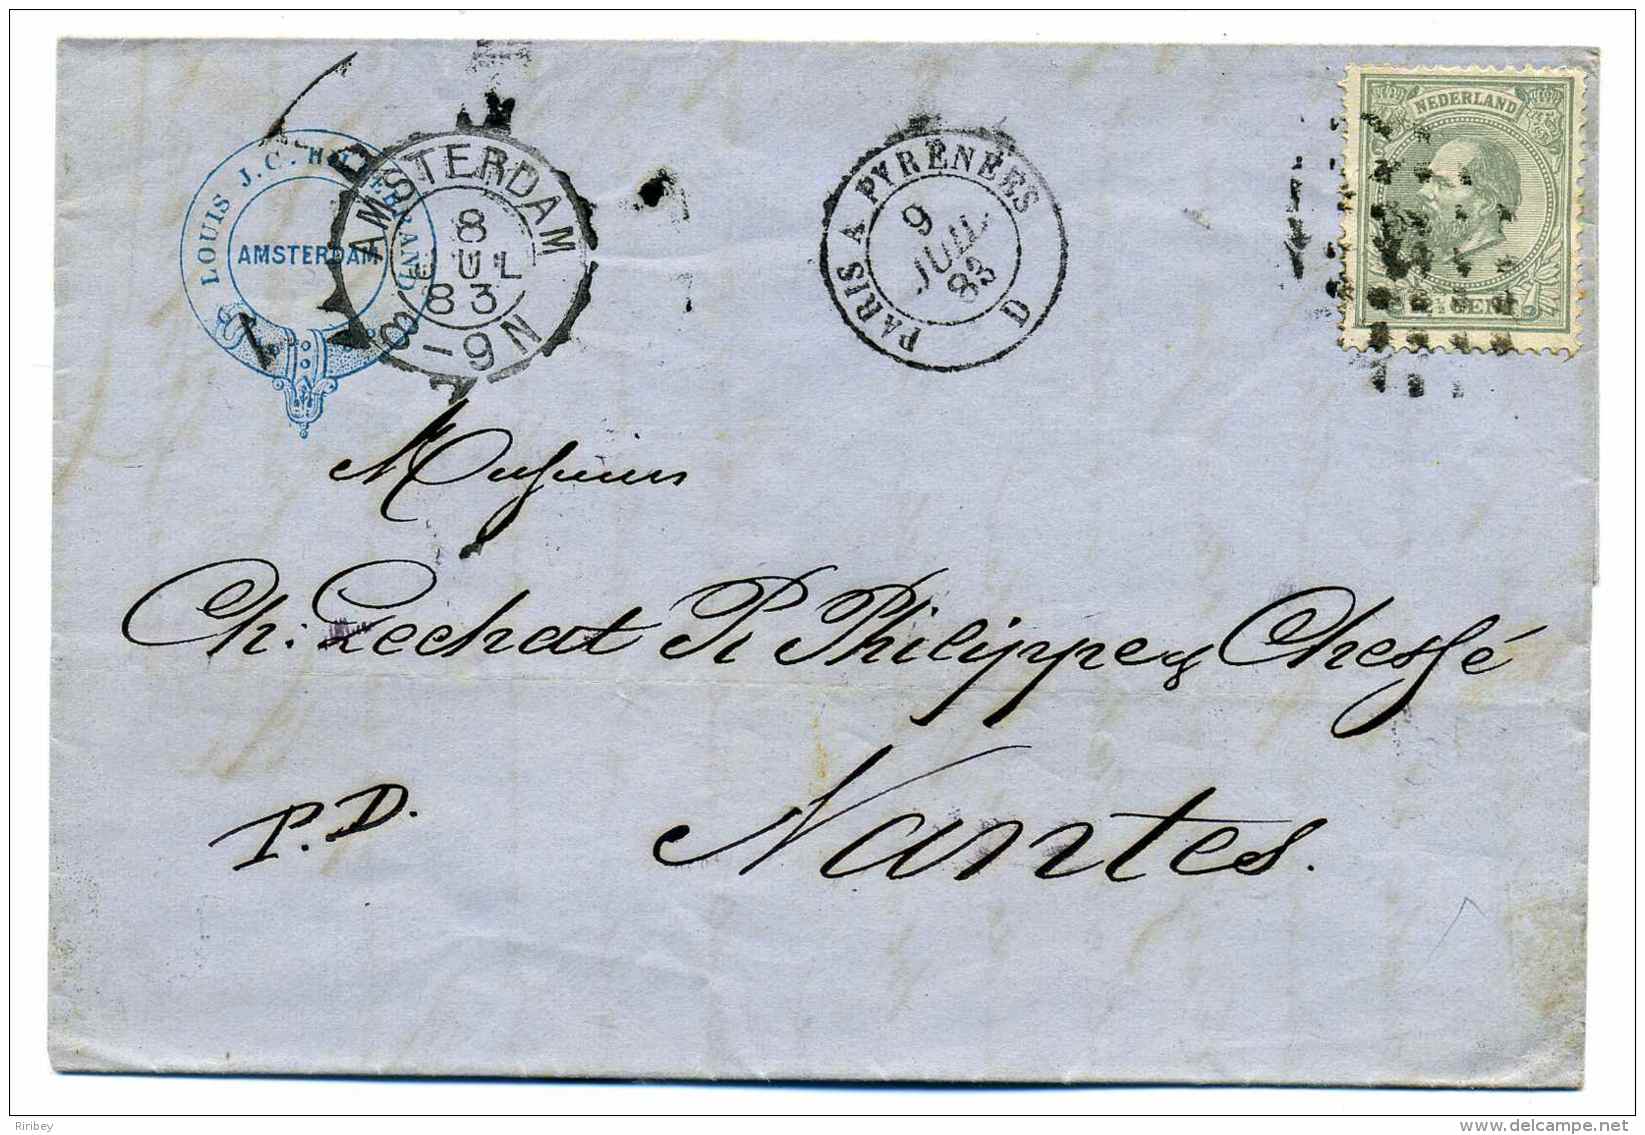 LOUIS J.C.
AMSTERDAM
AMSTERDAM
8
JUL
83
8-9N
PARIS A PYRENEES
9
JUIL
83
D
NEDERLAND
12½ CENT
Messieurs
Ch: Lechat Philippe & Chessé
Nantes.
P.D.
Riribey
delcampe.net